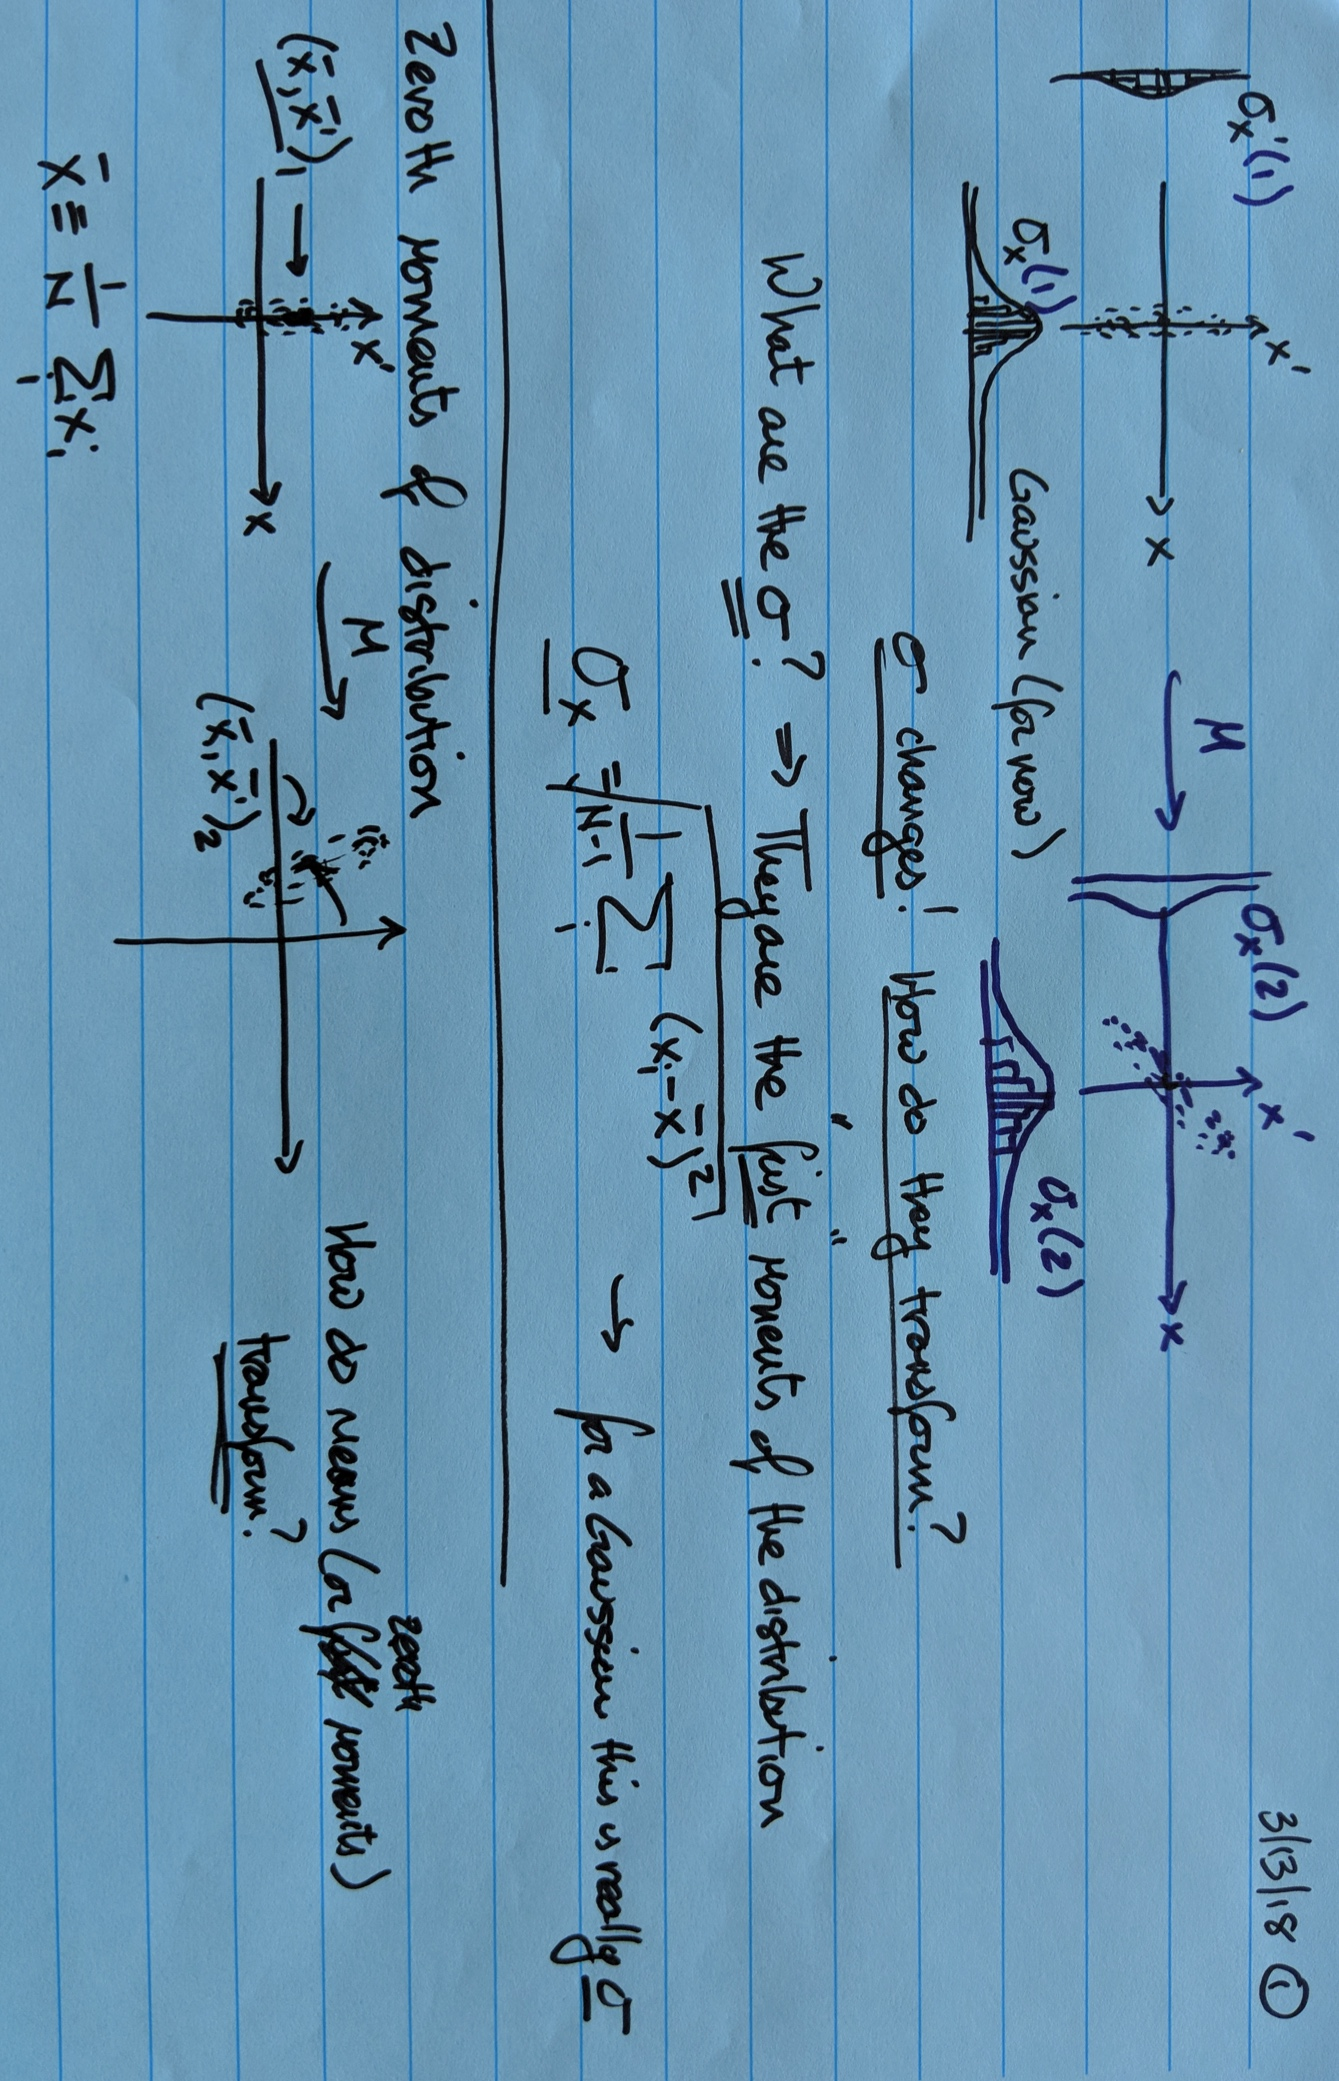 3/13/18 ①
σx'(1)
x'
x
M
σx(2)
x'
x
σx(1)
Gaussian (for now)
σx(2)
σ changes! How do they transform?
What are the σ? ⇒ They are the "first" moments of the distribution
σx = √(1/(N-1) Σi (xi - x̄)²) → for a Gaussian this is really σ
Zeroth moments of distribution
(x̄, x̄')1 →
x'
x
M
(x̄, x̄')2
How do means (or zeroth moments)
transform?
x̄ ≡ 1/N Σi xi